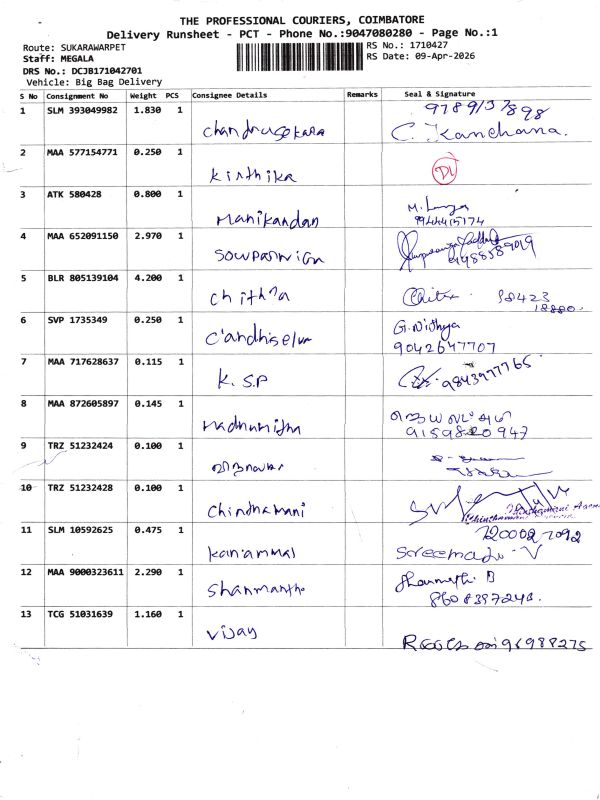 THE PROFESSIONAL COURIERS, COIMBATORE
Delivery Runsheet - PCT - Phone No.:9047080280 - Page No.:1
Route: SUKARAWARPET
RS No.: 1710427
Staff: MEGALA
RS Date: 09-Apr-2026
DRS No.: DCJB171042701
Vehicle: Big Bag Delivery
S No Consignment No Weight PCS Consignee Details Remarks Seal & Signature
1 SLM 393049982 1.830 1 Chandrasekara 9789137898
C. Kanchana.
2 MAA 577154771 0.250 1 Kirthika DL
3 ATK 580428 0.800 1 Manikandan M.
9944415174
4 MAA 652091150 2.970 1 Sowparnica
5 BLR 805139104 4.200 1 Chithra Chitra 98423
18880.
6 SVP 1735349 0.250 1 G. Nithya
9042647707
7 MAA 717628637 0.115 1 K.S.P 9843977765
8 MAA 872605897 0.145 1 Madhumitha
9159820947
9 TRZ 51232424 0.100 1
10 TRZ 51232428 0.100 1 Chindhamani
11 SLM 10592625 0.475 1 Kaniammal 7200027092
Sreemadu. V
12 MAA 9000323611 2.290 1 Shanmantho Shanmathi B
8608397248.
13 TCG 51031639 1.160 1 Vijay 96988275